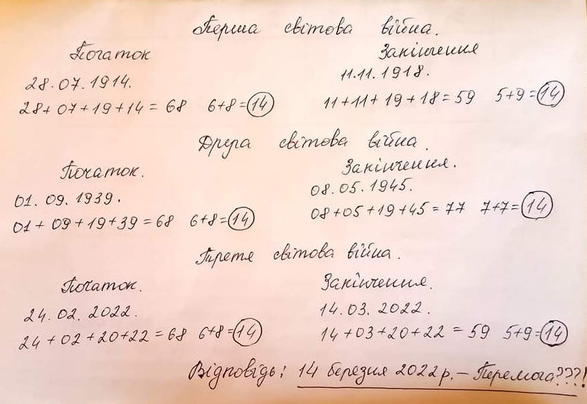 Перша світова війна.
Початок Закінчення
28.07.1914. 11.11.1918.
28+07+19+14=68 6+8=14 11+11+19+18=59 5+9=14
Друга світова війна.
Початок. Закінчення.
01.09.1939. 08.05.1945.
01+09+19+39=68 6+8=14 08+05+19+45=77 7+7=14
Третя світова війна.
Початок. Закінчення.
24.02.2022. 14.03.2022.
24+02+20+22=68 6+8=14 14+03+20+22=59 5+9=14
Відповідь: 14 березня 2022р.–Перемога???!